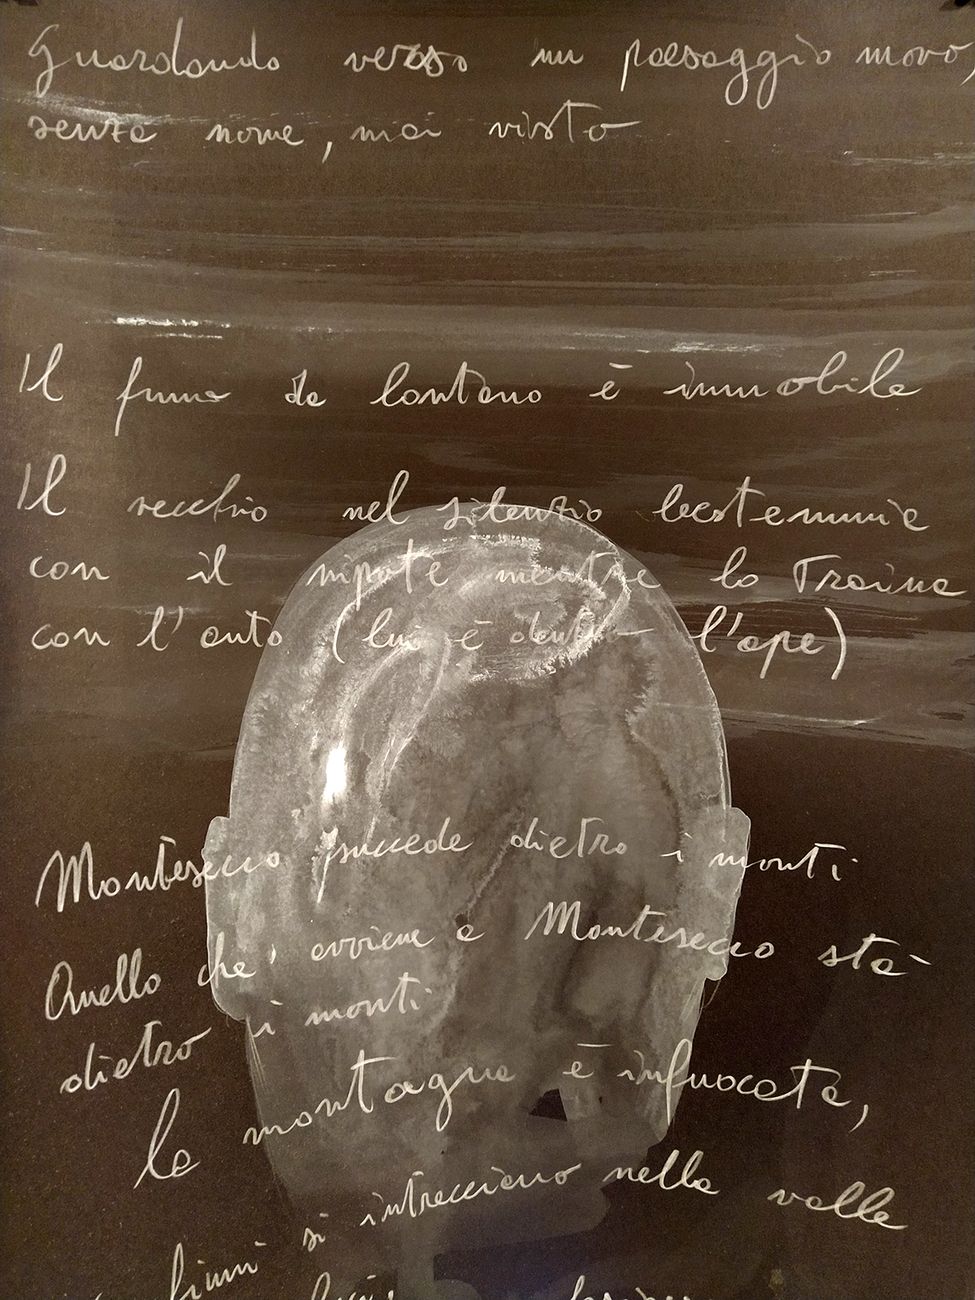 Guardando verso un paesaggio novo,
senza nome, mai visto
Il fumo da lontano è immobile
Il vecchio nel silenzio bestemmia
con il nipote mentre lo traina
con l'auto (lui è dentro l'ape)
Montesecco succede dietro i monti
Quello che avviene a Montesecco stà
dietro i monti
la montagna è infuocata,
fiumi si intrecciano nella valle